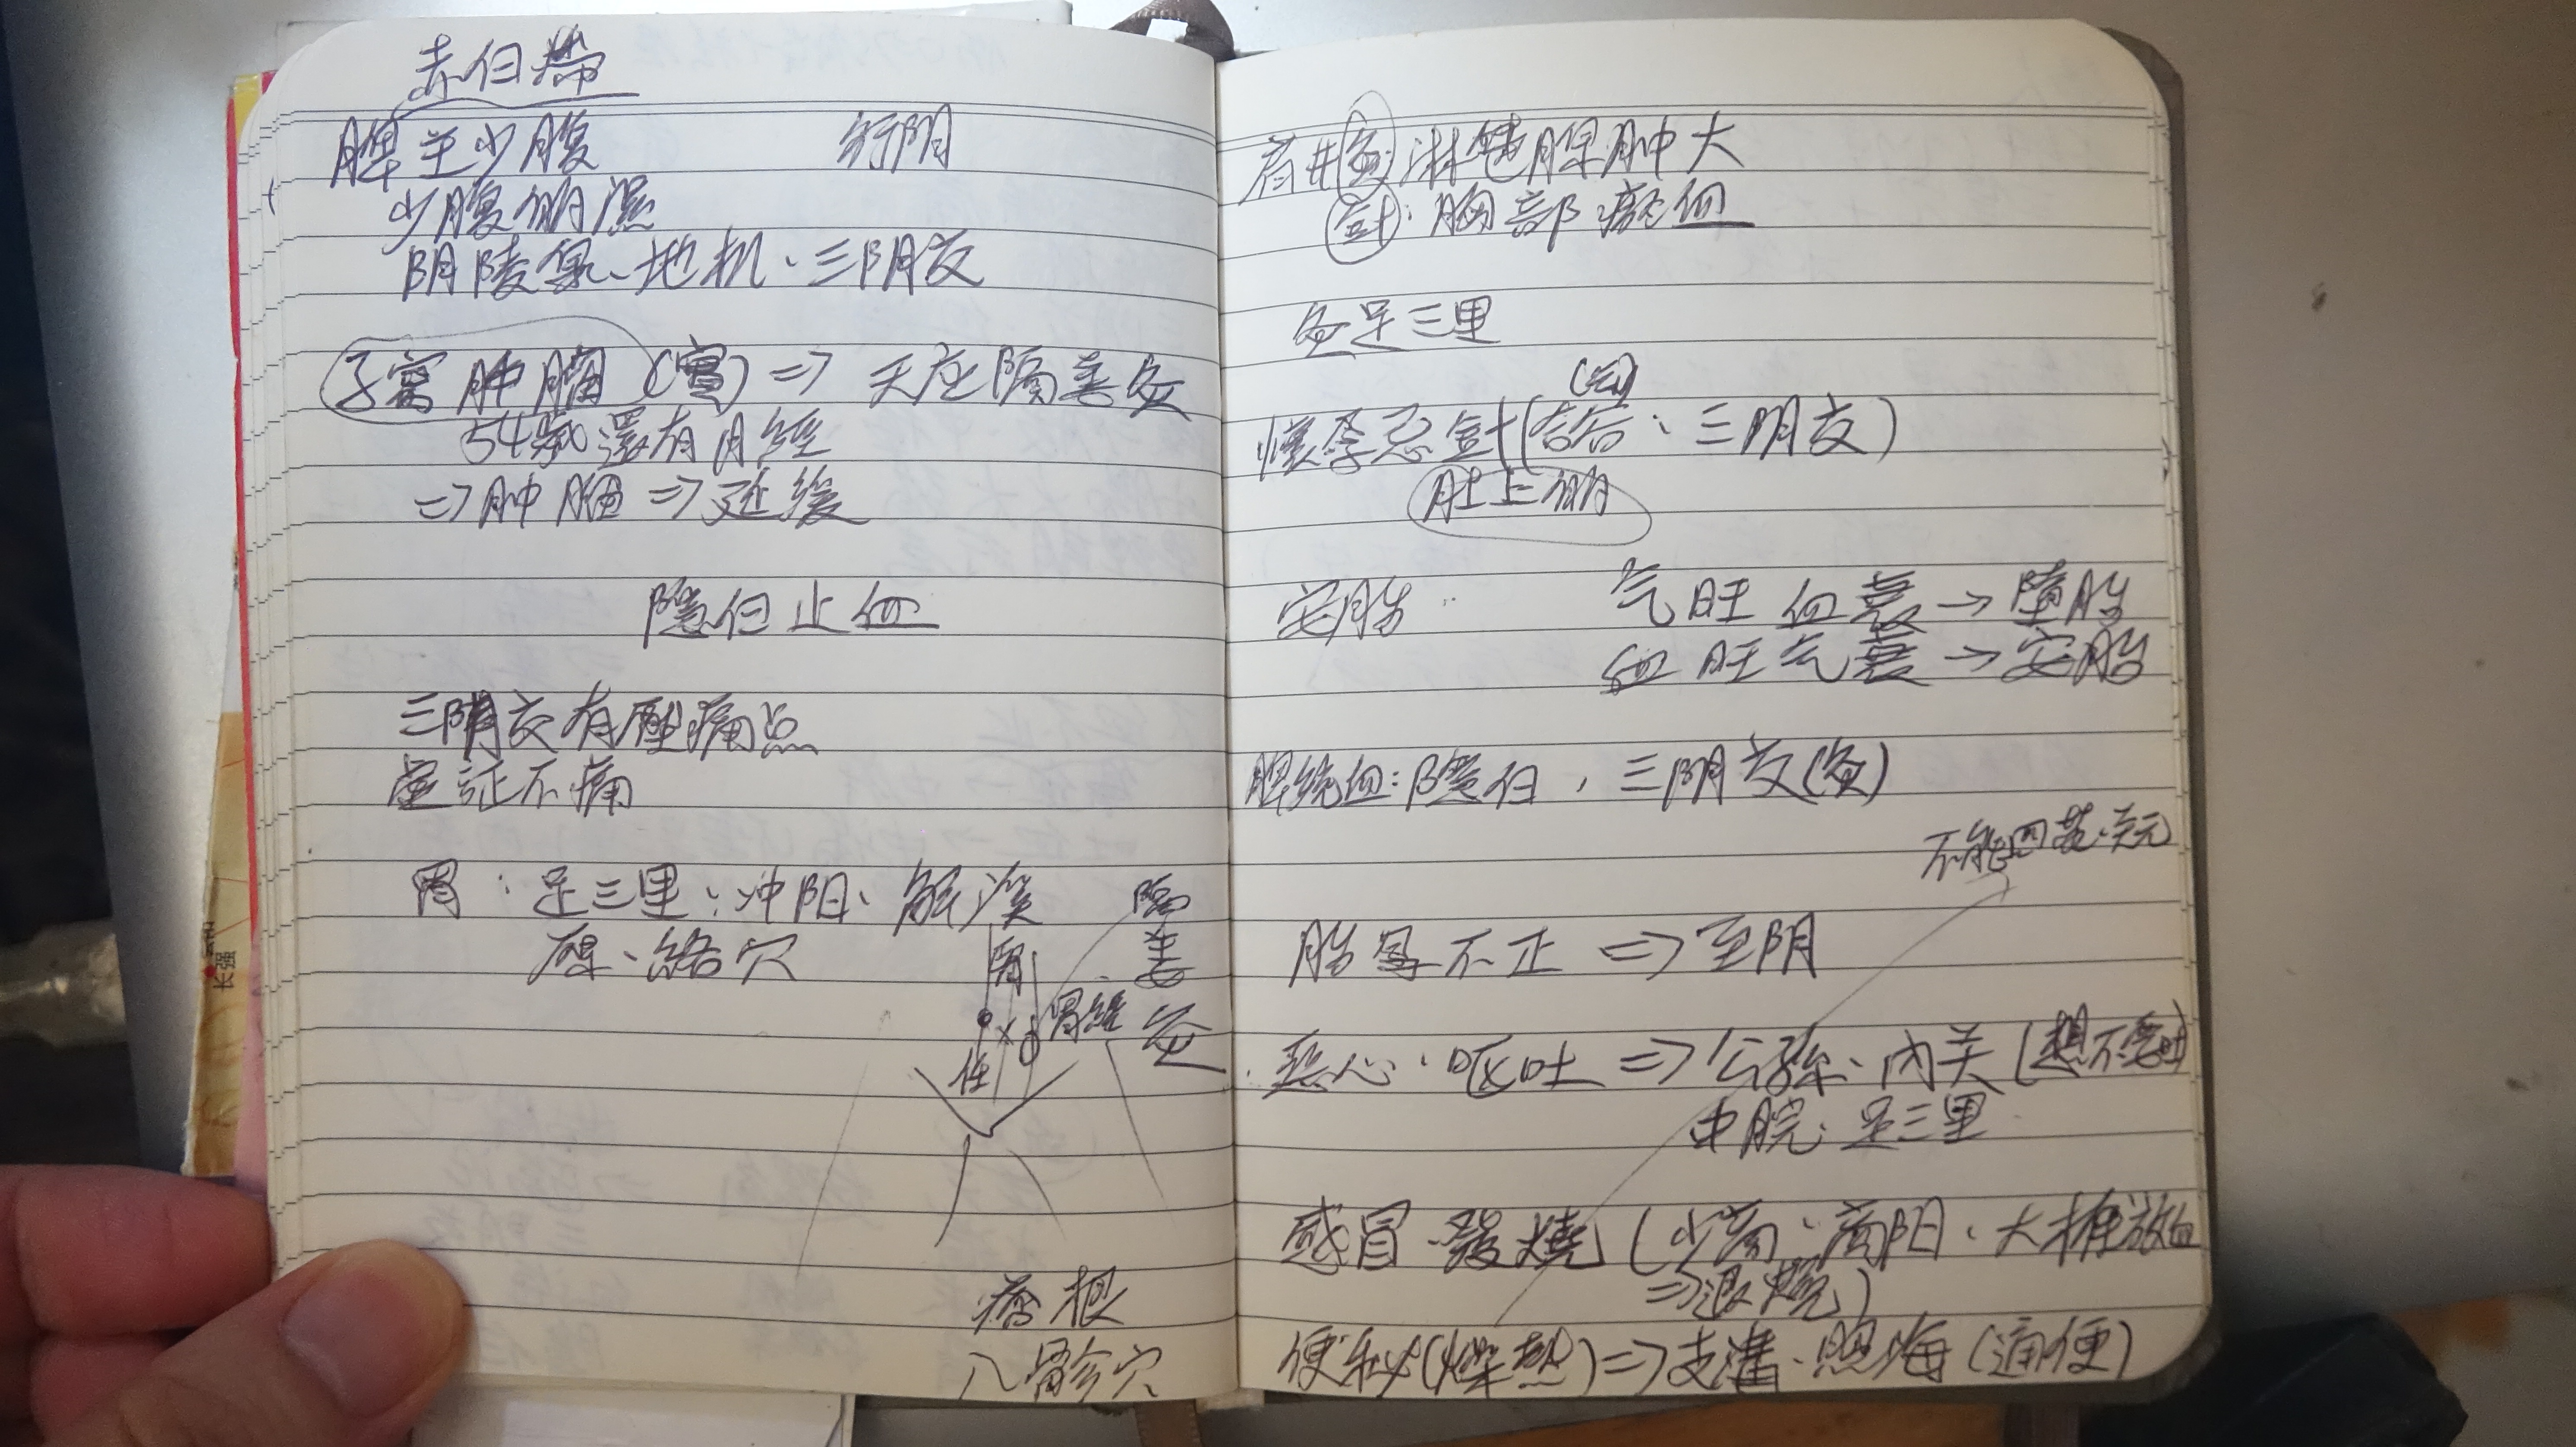 赤白帶
脾主少腹 行阴
少腹朒濕
阴陵泉、地机、三阴交
子宮肿瘤(實) => 天应隔姜灸
54歲還有月經
=>肿瘤=>延緩
隱白止血
三阴交有壓痛点
虛証不痛
胃：足三里、冲阳、解溪
原、絡穴
隔姜灸
胃經
任
痞根
八髎穴
肩井灸 淋巴腺肿大
針：胸部瘀血
灸足三里
懷孕忌針(合谷、三阴交)
肚上
安胎 气旺血衰→墮胎
血旺气衰→安胎
脾统血：隱白，三阴交(灸)
不能四花、关元
胎兒不正 => 至阴
恶心、呕吐 => 公孫、内关(想不要吐)
中脘、足三里
感冒、發燒(少商、商阳、大椎放血
=>退燒)
便秘(燥热)=>支溝、照海(通便)
长强